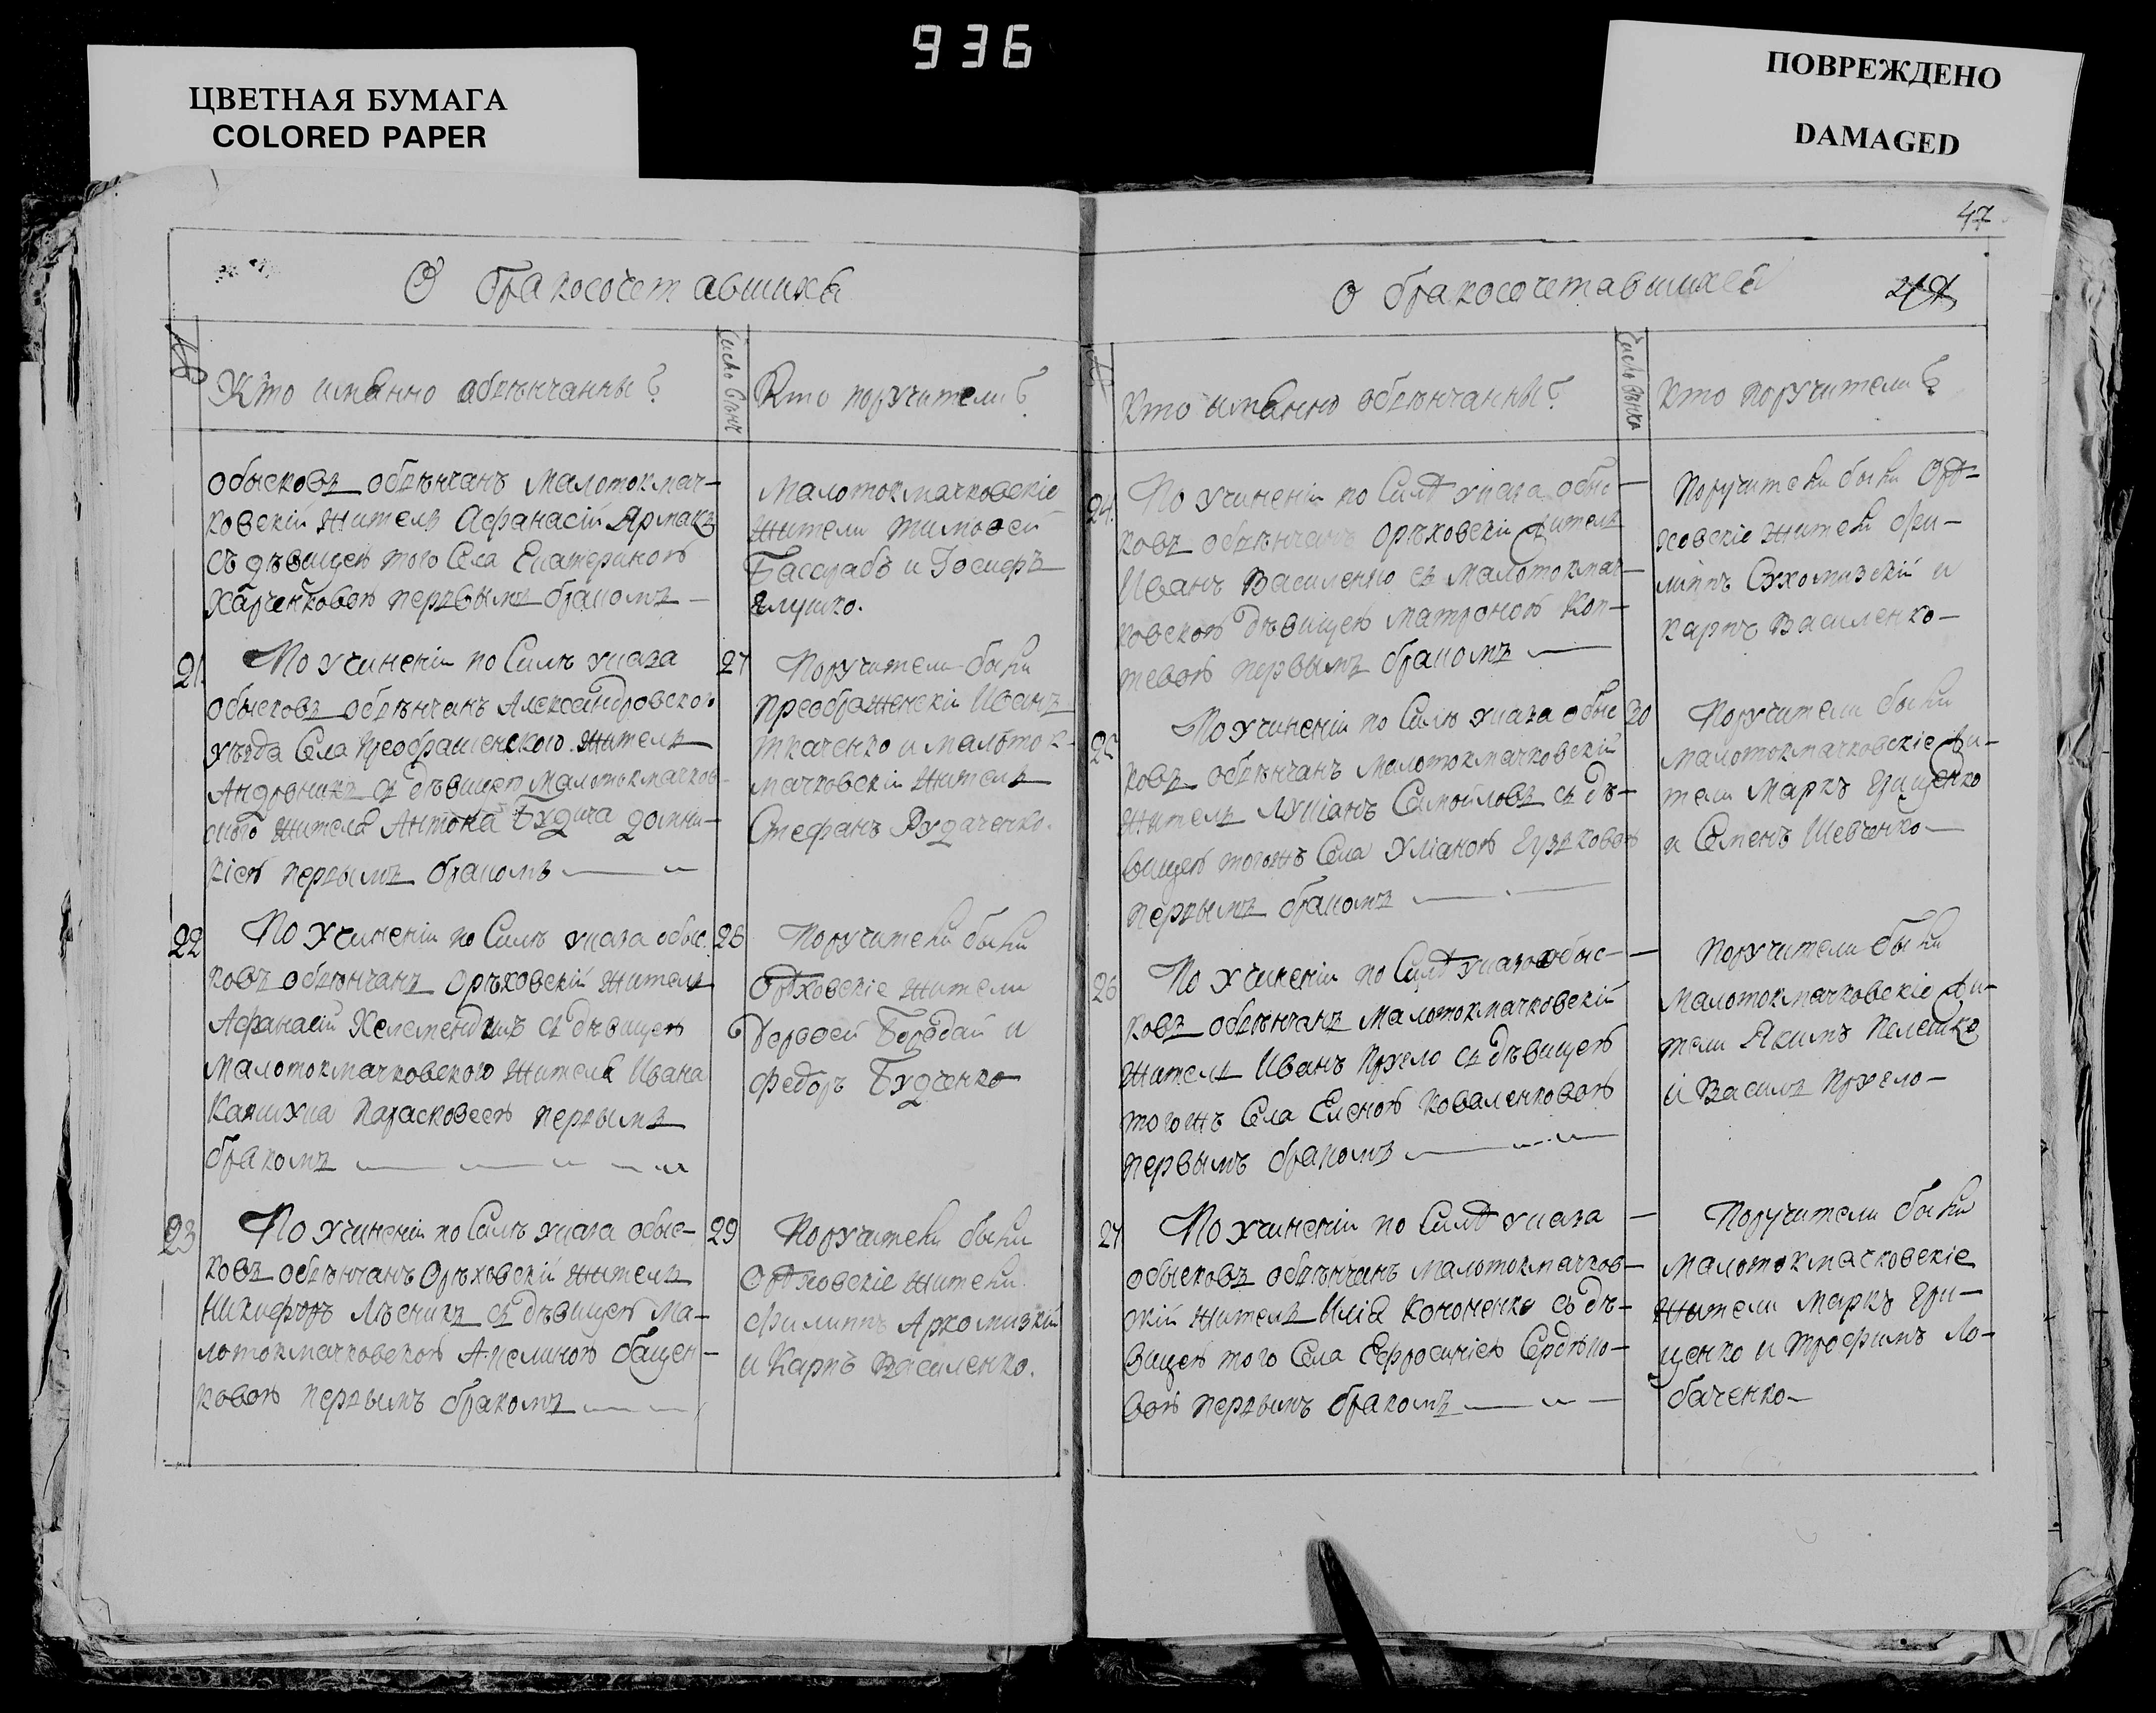 936
ЦВЕТНАЯ БУМАГА
COLORED PAPER
ПОВРЕЖДЕНО
DAMAGED
О бракосочетавшихся
№
Кто имянно обвѣнчанны?
Число Вѣнч
Кто поручители?
обысковъ обвѣнчанъ Малотокмач-
ковскій житель Афанасій Ярмакъ
съ дѣвицею того Села Екатериною
Харченковою первымъ бракомъ —
Малотокмачковскіе
жители Тимофей
Басарабъ и Іосифъ
Глушко.
21.
По учиненіи по Силѣ указа
обысковъ обвѣнчанъ Александровского
уѣзда Села Преображенского житель
Андроникъ съ дѣвицею Малотокмачков-
ского жителя Антона
первымъ бракомъ —
27
Поручители были
Преображенскій Иванъ
Ткаченко и Малоток-
мачковскій житель
Стефанъ Рудаченко.
22
По учиненіи по Силѣ указа обыс-
ковъ обвѣнчанъ Орѣховскій житель
Афанасій съ дѣвицею
Малотокмачковского жителя Ивана
Парасковеею первымъ
бракомъ —
28
Поручители были
Орѣховскіе жители
Бородай и
Федоръ Будченко
23
По учиненіи по Силѣ указа обыс-
ковъ обвѣнчанъ Орѣховскій житель
Никифоръ Лѣсникъ съ дѣвицею Ма-
лотокмачковскою Акелиною Бацен-
ковою первымъ бракомъ —
29
Поручители были
Орѣховскіе жители
Филиппъ
и Карпъ Василенко.
47
О бракосочетавшихся
№
Кто имянно обвѣнчанны?
Число Вѣнча
Кто поручители?
24.
По учиненіи по Силѣ указа обыс-
ковъ обвѣнчанъ Орѣховскій житель
Иванъ Василенко съ Малотокмач-
ковскою дѣвицею Матроною Коп-
тевою первымъ бракомъ —
—
Поручители были Орѣ-
ховскіе жители Фи-
липпъ и
Карпъ Василенко —
25
По учиненіи по Силѣ указа обыс-
ковъ обвѣнчанъ Малотокмачковскій
житель Лукіанъ Самойловъ съ дѣ-
вицею тогожъ Села Уліаною
первымъ бракомъ —
30
Поручители были
Малотокмачковскіе жи-
тели Маркъ Грищенко
и Семенъ Шевченко —
26
По учиненіи по Силѣ указа обыс-
ковъ обвѣнчанъ Малотокмачковскій
житель Иванъ Прхело съ дѣвицею
тогожъ Села Еленою Коваленковою
первымъ бракомъ —
—
Поручители были
Малотокмачковскіе жи-
тели Якимъ
и Василь Прхело —
27
По учиненіи по Силѣ указа
обысковъ обвѣнчанъ Малотокмачков-
скій житель Илія Кононенко съ дѣ-
вицею того Села Ефросиніею Сердюко-
вою первымъ бракомъ —
—
Поручители были
Малотокмачковскіе
жители Маркъ Гри-
щенко и Трофимъ Ло-
баченко —